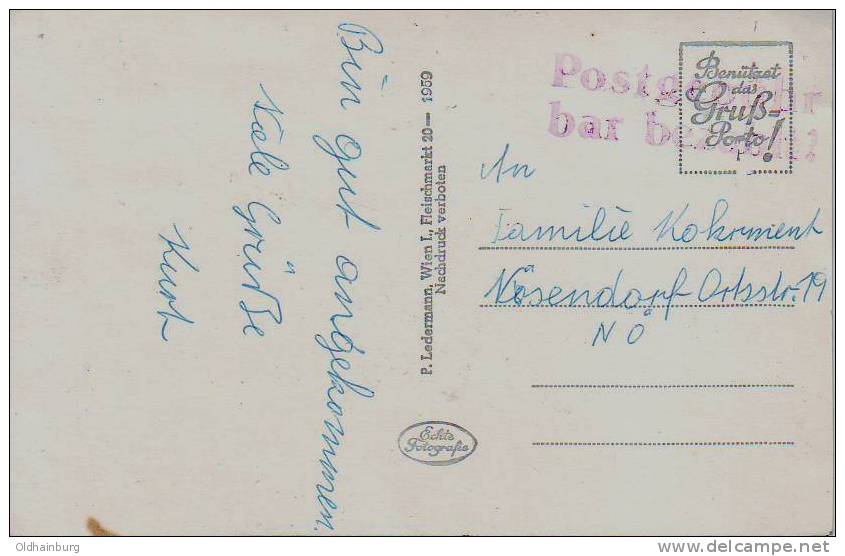 Bin gut angekommen.
Viele Grüße
Kurt
P. Ledermann, Wien I., Fleischmarkt 20 — 1959
Nachdruck verboten
Echte
Fotografie
Postgebühr
bar bezahlt
Benützet
das
Gruß-
Porto!
An
Familie Kokrment
Vösendorf-Ortsstr. 19
NÖ
Oldhainburg
www.delcampe.net